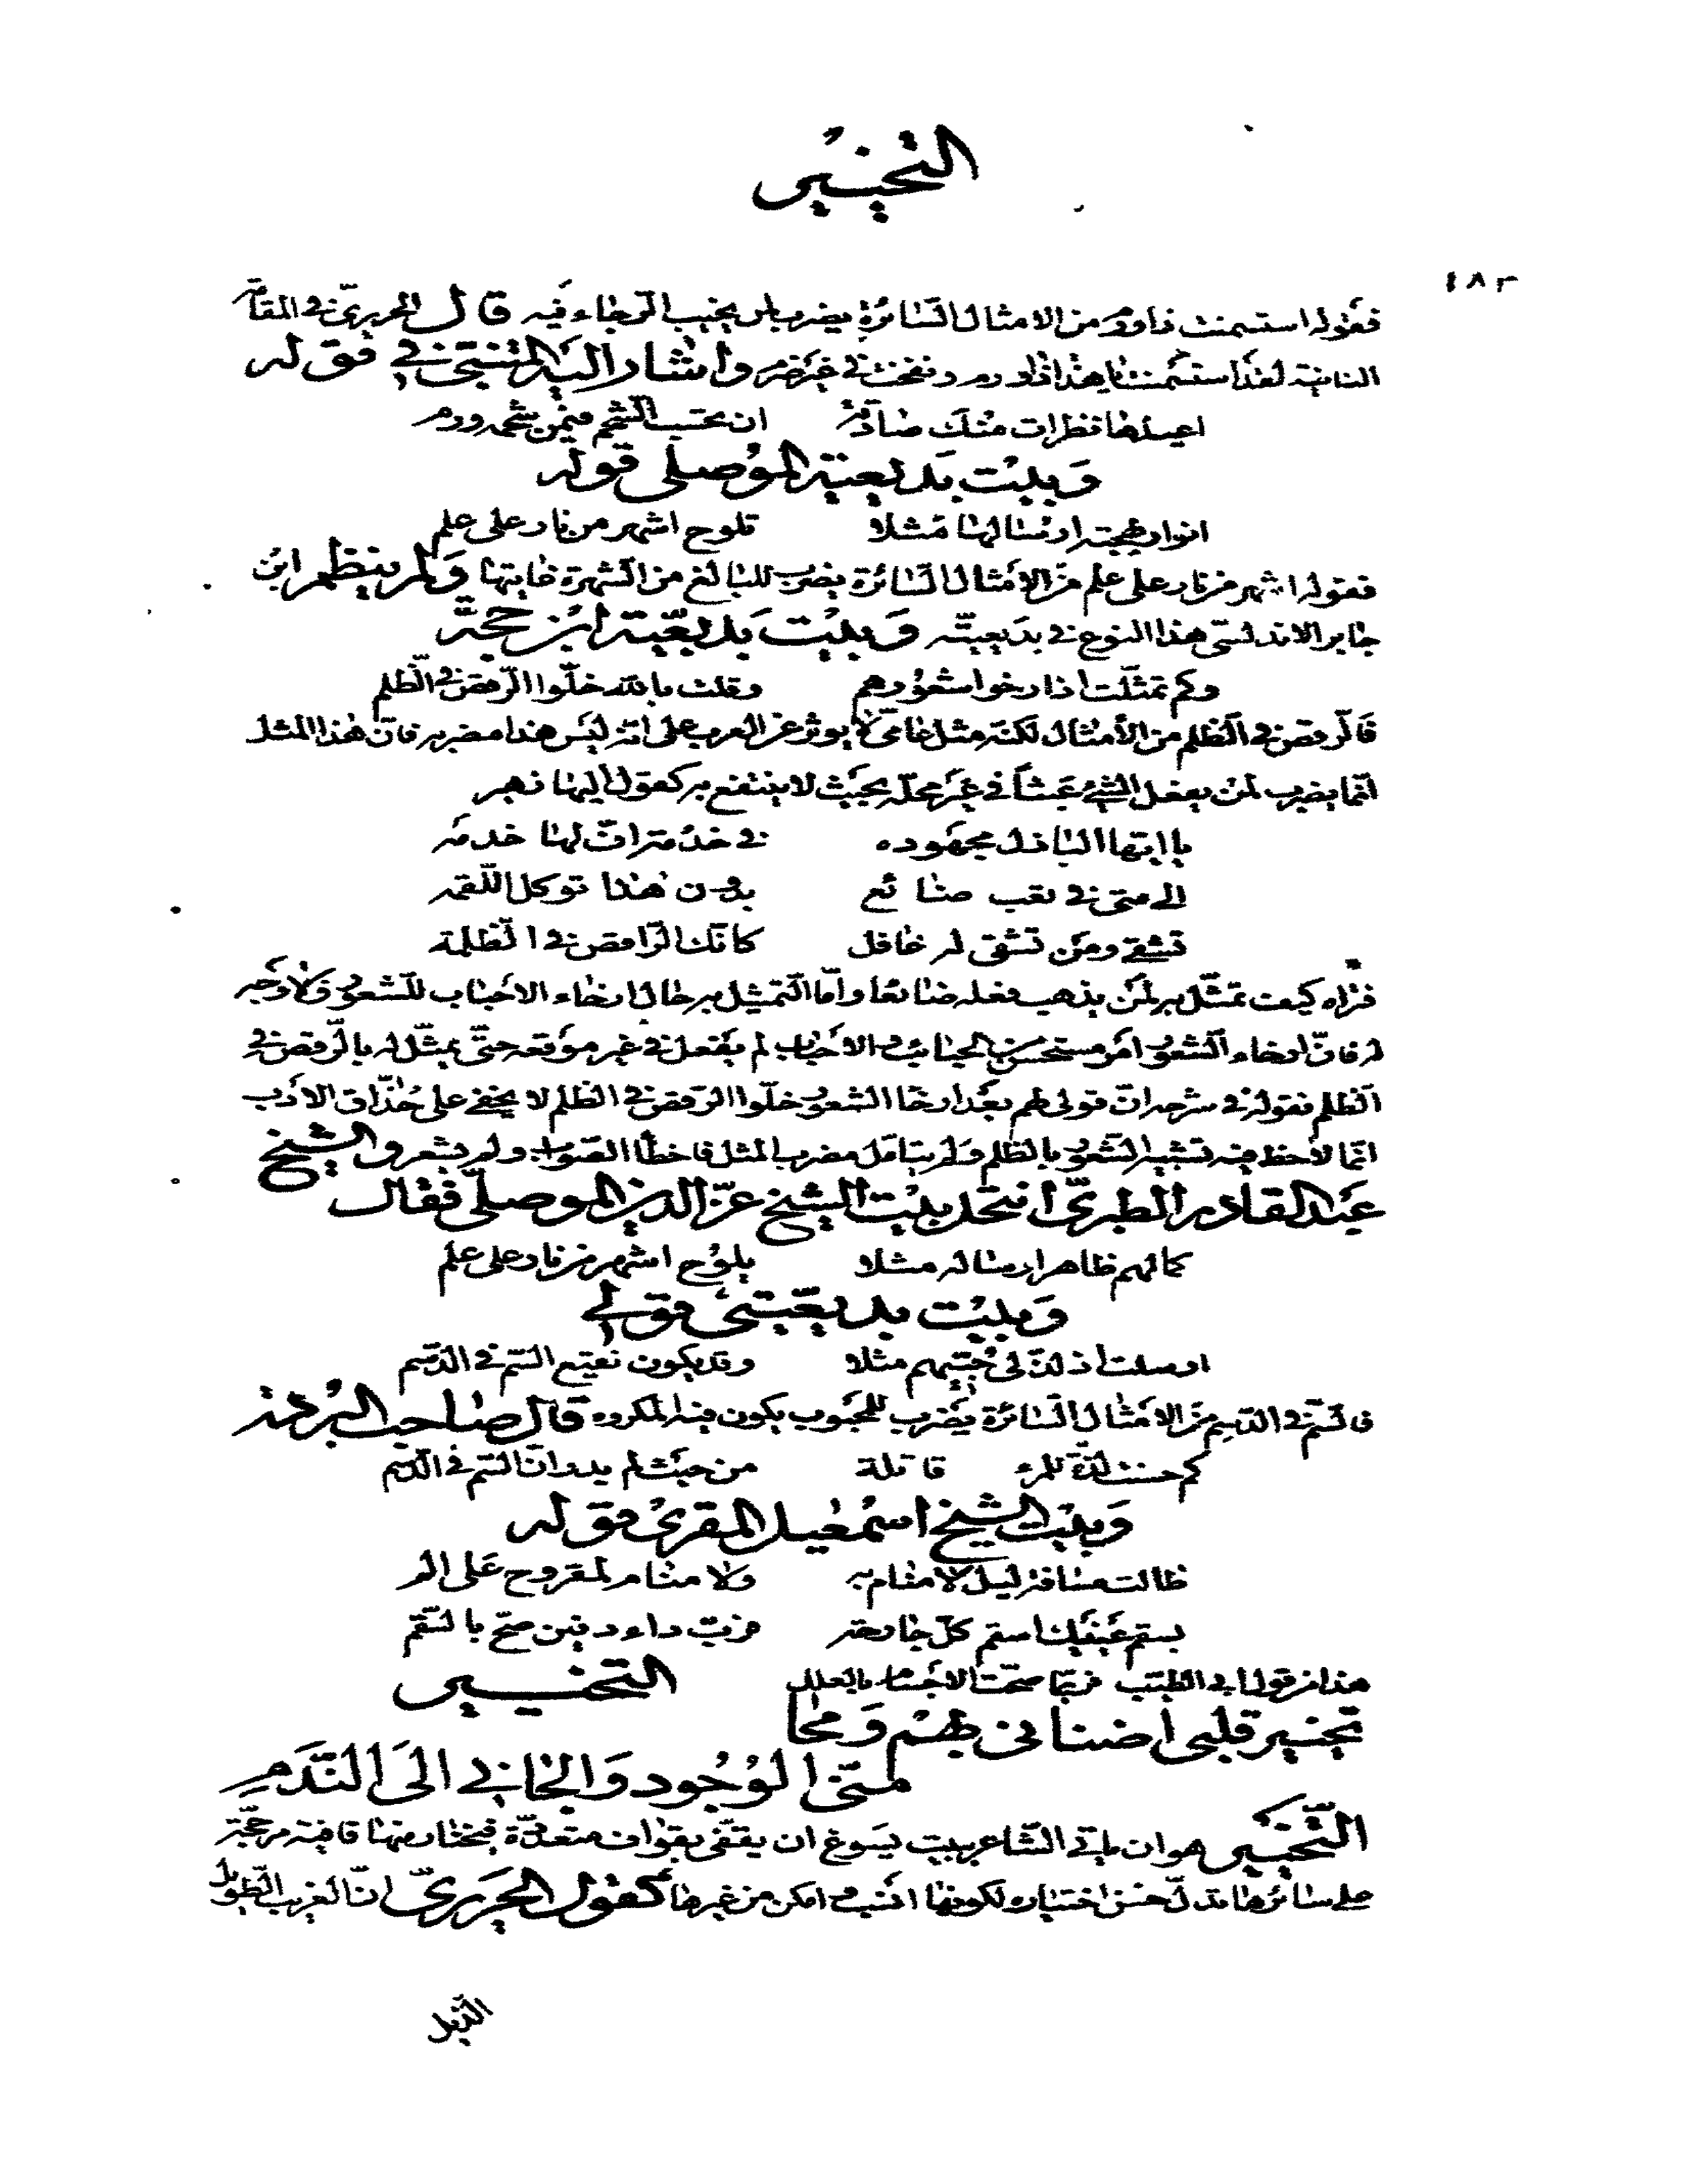 التخيير
١٨٣
فقوله استسمنت ذا ورم من الامثال السائرة يضرب لمن يخيب الرجاء فيه قال الحريري في المقامة
الثانية لقد استسمنت يا هذا ذا ورم ونفخت في غير ضرم واشار اليه المتنبي في قوله
اعيذها نظرات منك صادقة ان تحسب الشحم فيمن شحمه ورم
وبيت بديعية الموصلي قوله
انوار بهجته ارسالها مثلا تلوح اشهر من نار على علم
فقوله اشهر من نار على علم من الامثال السائرة يضرب للبالغ من الشهرة غايتها ولم ينظم ابن
جابر الاندلسي هذا النوع في بديعيته وبيت بديعية ابن حجة
وكم تمثلت اذا رخوا شعورهم وقلت بالله خلوا الرقص في الظلم
فالرقص في الظلم من الأمثال لكنه مثل عامي لا يوثر عن العرب على انه ليس هذا مضربه فان هذا المثل
انما يضرب لمن يفعل الشئ عبثا في غير محله بحيث لا ينتفع به كقول البها زهير
يا ايها الباذل مجهوده في خدمة اف لها خدمه
الى متى في تعب ضائع بدون هذا توكل اللقمه
تشقى ومن تشقى له غافل كانك الراقص في الظلمة
فتراه كيف تمثل به لمن يذهب فعله ضائعا واما التمثيل به حال ارخاء الاحباب للشعور فلا وجه
له فان ارخاء الشعور امر مستحسن الاحباب لم يفعل في غير موقعه حتى يمثل له بالرقص في
الظلم فقوله في شرحه ان قولي لهم بعد ارخا الشعور خلوا الرقص في الظلم لا يخفى على حذاق الادب
انما لاحظ فيه تشبيه الشعور بالظلم ولم يتامل مضرب المثل فاخطأ الصواب ولم يشعر والشيخ
عبد القادر الطبري انتحل بيت الشيخ عز الدين الموصلي فقال
كمالهم ظاهر ارساله مثلا يلوح اشهر من نار على علم
وبيت بديعيتي قولي
ارسلت اذ لذ لي حبيهم مثلا وقد يكون نقيع السم في الدسم
فالسم في الدسم من الامثال السائرة يضرب للمحبوب يكون فيه المكروه قال صاحب البردة
كم حسنت لذة للمرء قاتلة من حيث لم يدر ان السم في الدسم
وبيت الشيخ اسمعيل المقري قوله
طالت مسافة ليل لا منام به ولا منام لمقروح على الم
بسقم عينيك اسقم كل جارحة فرب داء دفين صح بالسقم
هذا من قول ابي الطيب فربما صحت الاجسام بالعلل التخيير
تخيير قلبي اضناني بهم ومحا
منى الوجود والجاني الى الندم
التخيير هو ان ياتي الشاعر ببيت يسوغ ان يقفى بقواف متعددة فيختار منها قافية مرجحة
على سائرها تدل حسن اختياره لكونها انسب وامكن من غيرها كقول الحريري ان الغريب الطويل
الذيل